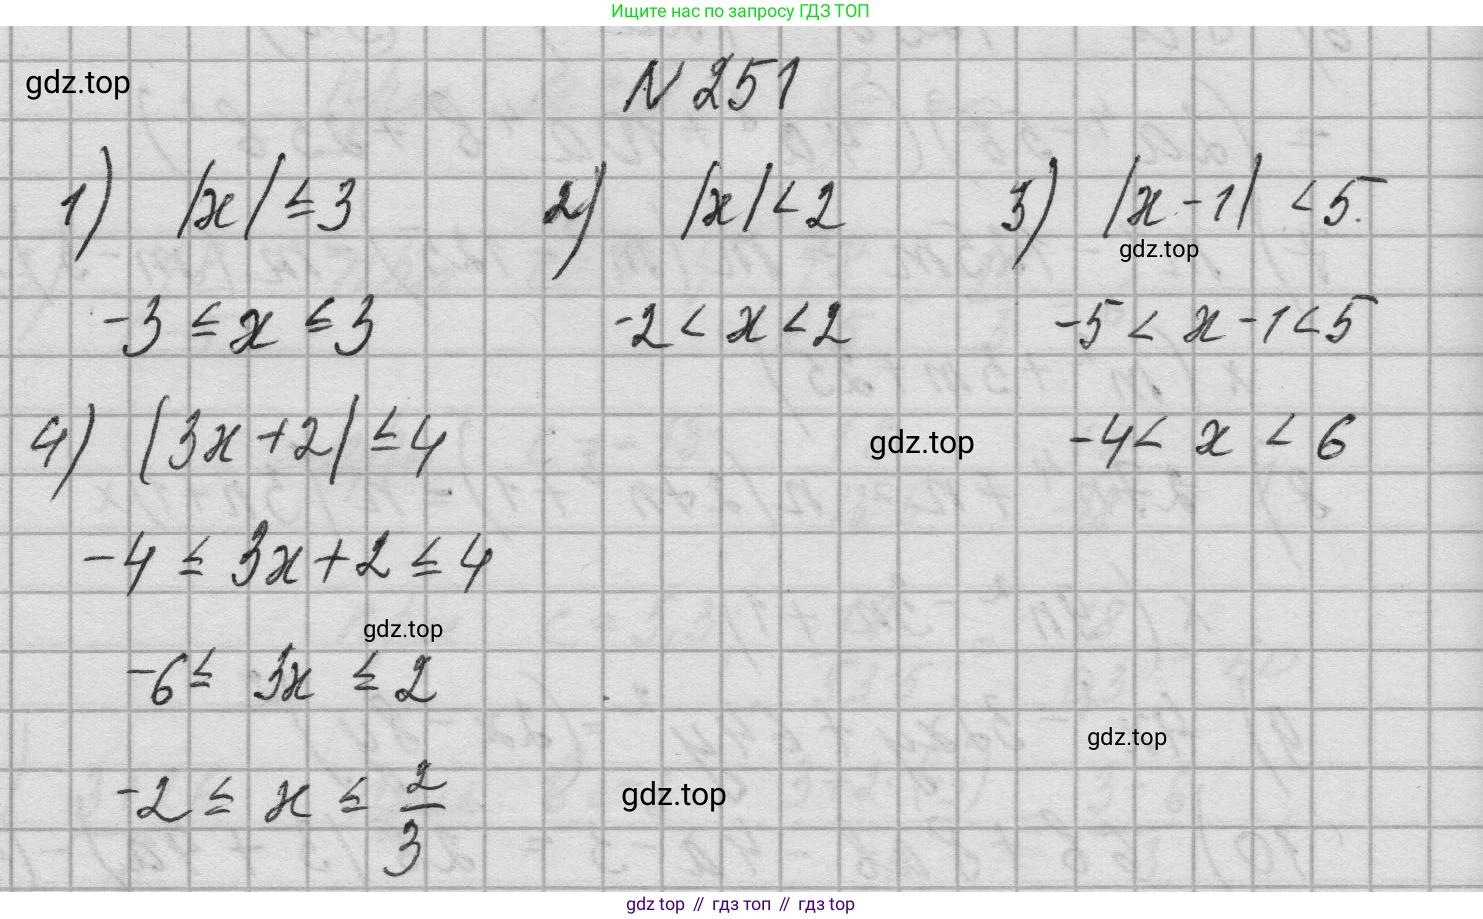 Ищите нас по запросу ГДЗ ТОП
gdz.top
N 251
1) |x| ≤ 3
-3 ≤ x ≤ 3
2) |x| < 2
-2 < x < 2
3) |x - 1| < 5.
gdz.top
-5 < x - 1 < 5
-4 < x < 6
4) |3x + 2| ≤ 4
gdz.top
-4 ≤ 3x + 2 ≤ 4
gdz.top
-6 ≤ 3x ≤ 2
gdz.top
-2 ≤ x ≤ 2/3
gdz.top
gdz top // гдз топ // гдз top